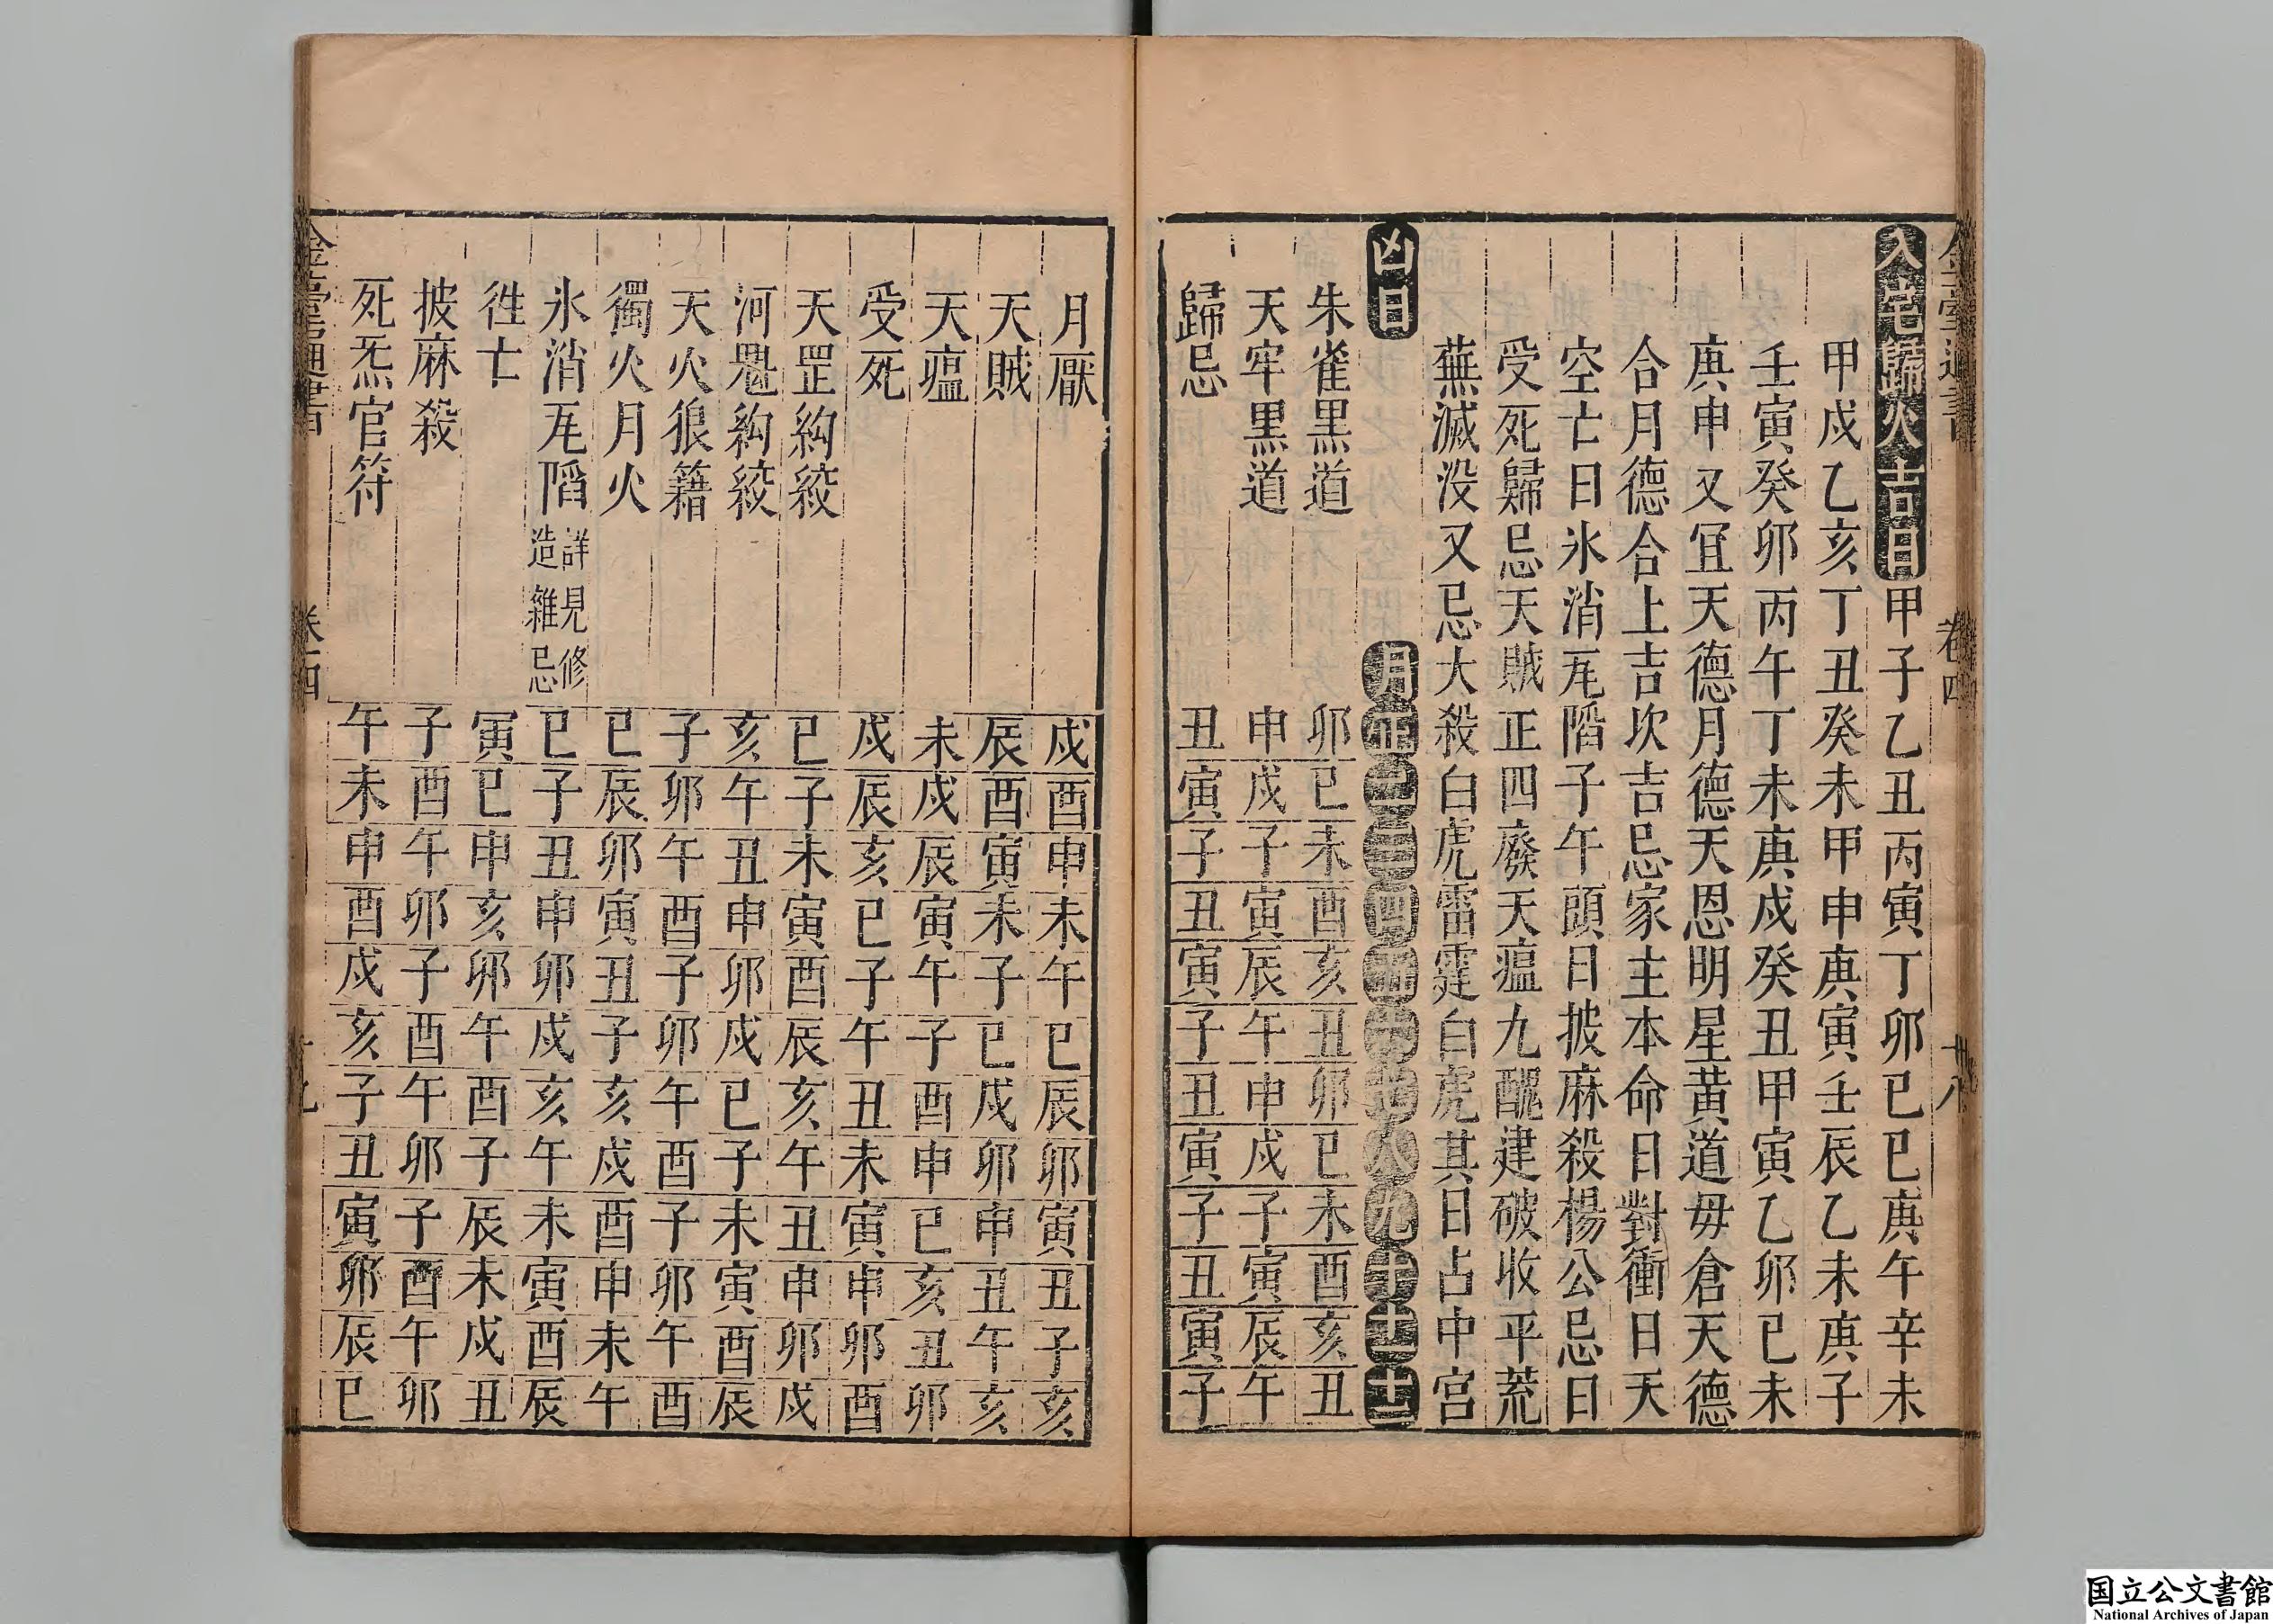 入宅歸火吉日甲子乙丑丙寅丁卯己巳庚午辛未
甲戌乙亥丁丑癸未甲申庚寅壬辰乙未庚子
壬寅癸卯丙午丁未庚戌癸丑甲寅乙卯己未
庚申又宜天德月德天恩明星黃道毋倉天德
合月德合上吉坎吉忌家主本命日對衝日天
空亡日氷消瓦陷子午頭日披麻殺楊公忌日
受死歸忌天賊正四廢天瘟九醜建破收平荒
蕪滅没又忌大殺白虎雷霆白虎其日占中宮
凶日月正二三四五六七八九十十一十二
朱雀黒道卯巳未酉亥丑卯巳未酉亥丑
天牢黒道申戌子寅辰午申戌子寅辰午
歸忌丑寅子丑寅子丑寅子丑寅子
卷四
十八
月厭戌酉申未午巳辰卯寅丑子亥
天賊辰酉寅未子巳戌卯申丑午亥
天瘟未戌辰寅午子酉申巳亥丑卯
受死戌辰亥巳子午丑未寅申卯酉
天罡絇絞巳子未寅酉辰亥午丑申卯戌
河魁絇絞亥午丑申卯戌巳子未寅酉辰
天火狼籍子卯午酉子卯午酉子卯午酉
獨火月火巳辰卯寅丑子亥戌酉申未午
氷消瓦陷詳見修造雜忌巳子丑申卯戌亥午未寅酉辰
徃亡寅巳申亥卯午酉子辰未戌丑
披麻殺子酉午卯子酉午卯子酉午卯
死炁官符午未申酉戌亥子丑寅卯辰巳
国立公文書館
National Archives of Japan